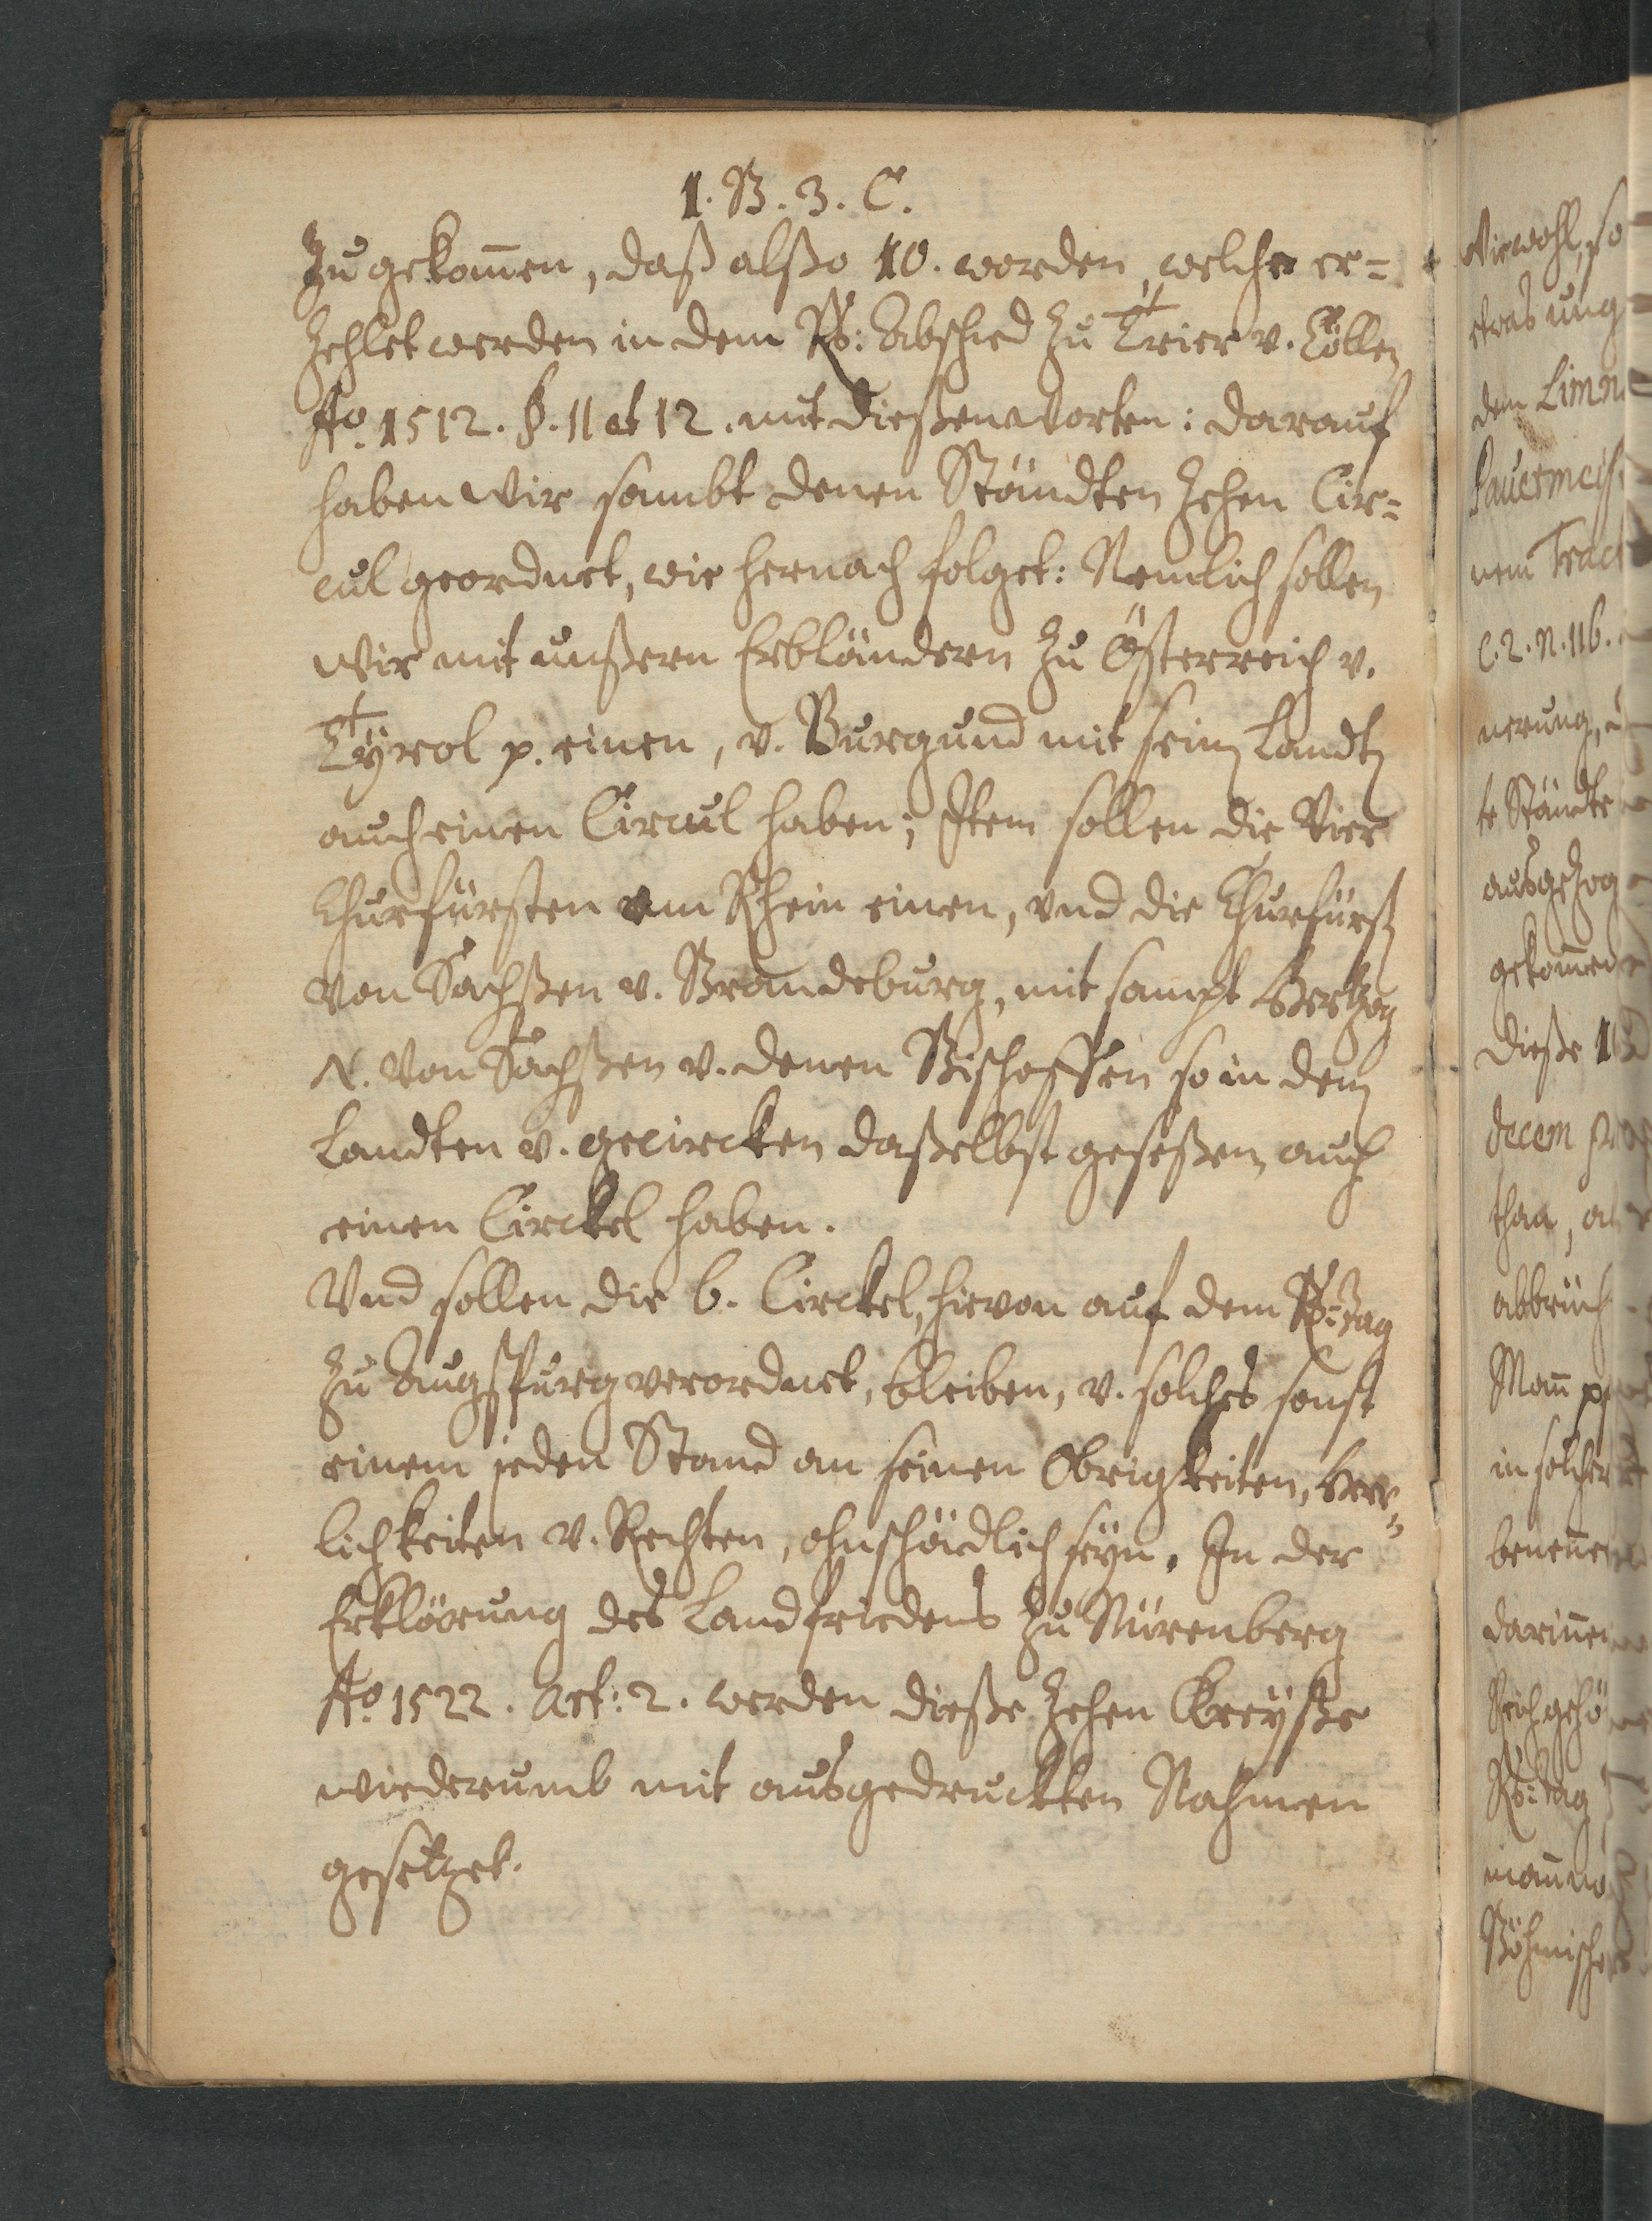 1. B. 3. C.
Zu gekom̄en, daß alßo 10. worden, welche er=
zehlet werden in dem Rß: Abschied zu Trier v. Cöllen
Ao. 1512. §. 11 et 12. mit dießen worten: darauf
haben Wir sambt denen Ständten Zehen Cir=
cul geordnet, wie hernach folget: Nemlich sollen
wir mit unßern Erbländern zu Österreich v.
Tÿrol p. einen, v. Burgund mit sein Landtn
auch einen Circul haben; Item sollen die Vier
Churfürsten am Rhein einen, vnd die Churfürst
von Sachßen v. Brandeburg, mit sampt Hertzog
N. von Sachßen v. denen Bischoffen so in den
Landten v. gecircken daßelbst geseßen, auch
einen Circkel haben.
Vnd sollen die 6. Circkel, hievon auf dem Rß: Tag
zu Augspurg verordnet, bleiben, v. solches sonst
einem jeden Stand an seinen Obrigkeiten, Herr=
lichkeiten v. Rechten, ohnschädlich seÿn. In der
Erklärung des Landfriedens zu Nürenberg
Ao. 1522. Art: 2. werden dieße Zehen Creÿße
wiederumb mit ausgedruckten Nahmen
gesetzet.
Wiewohl, so
etwas ung
den Limn
Sauermeis
nem Tract
C. 2. N. 116.
nerung,
te Ständte
ausgezog
gekom̄en
Dieße 10
decem
than,
abbruch
Man̄
in solcher
benen̄en
darin̄en
Reich gehö
Rß: Tag
Böhmische